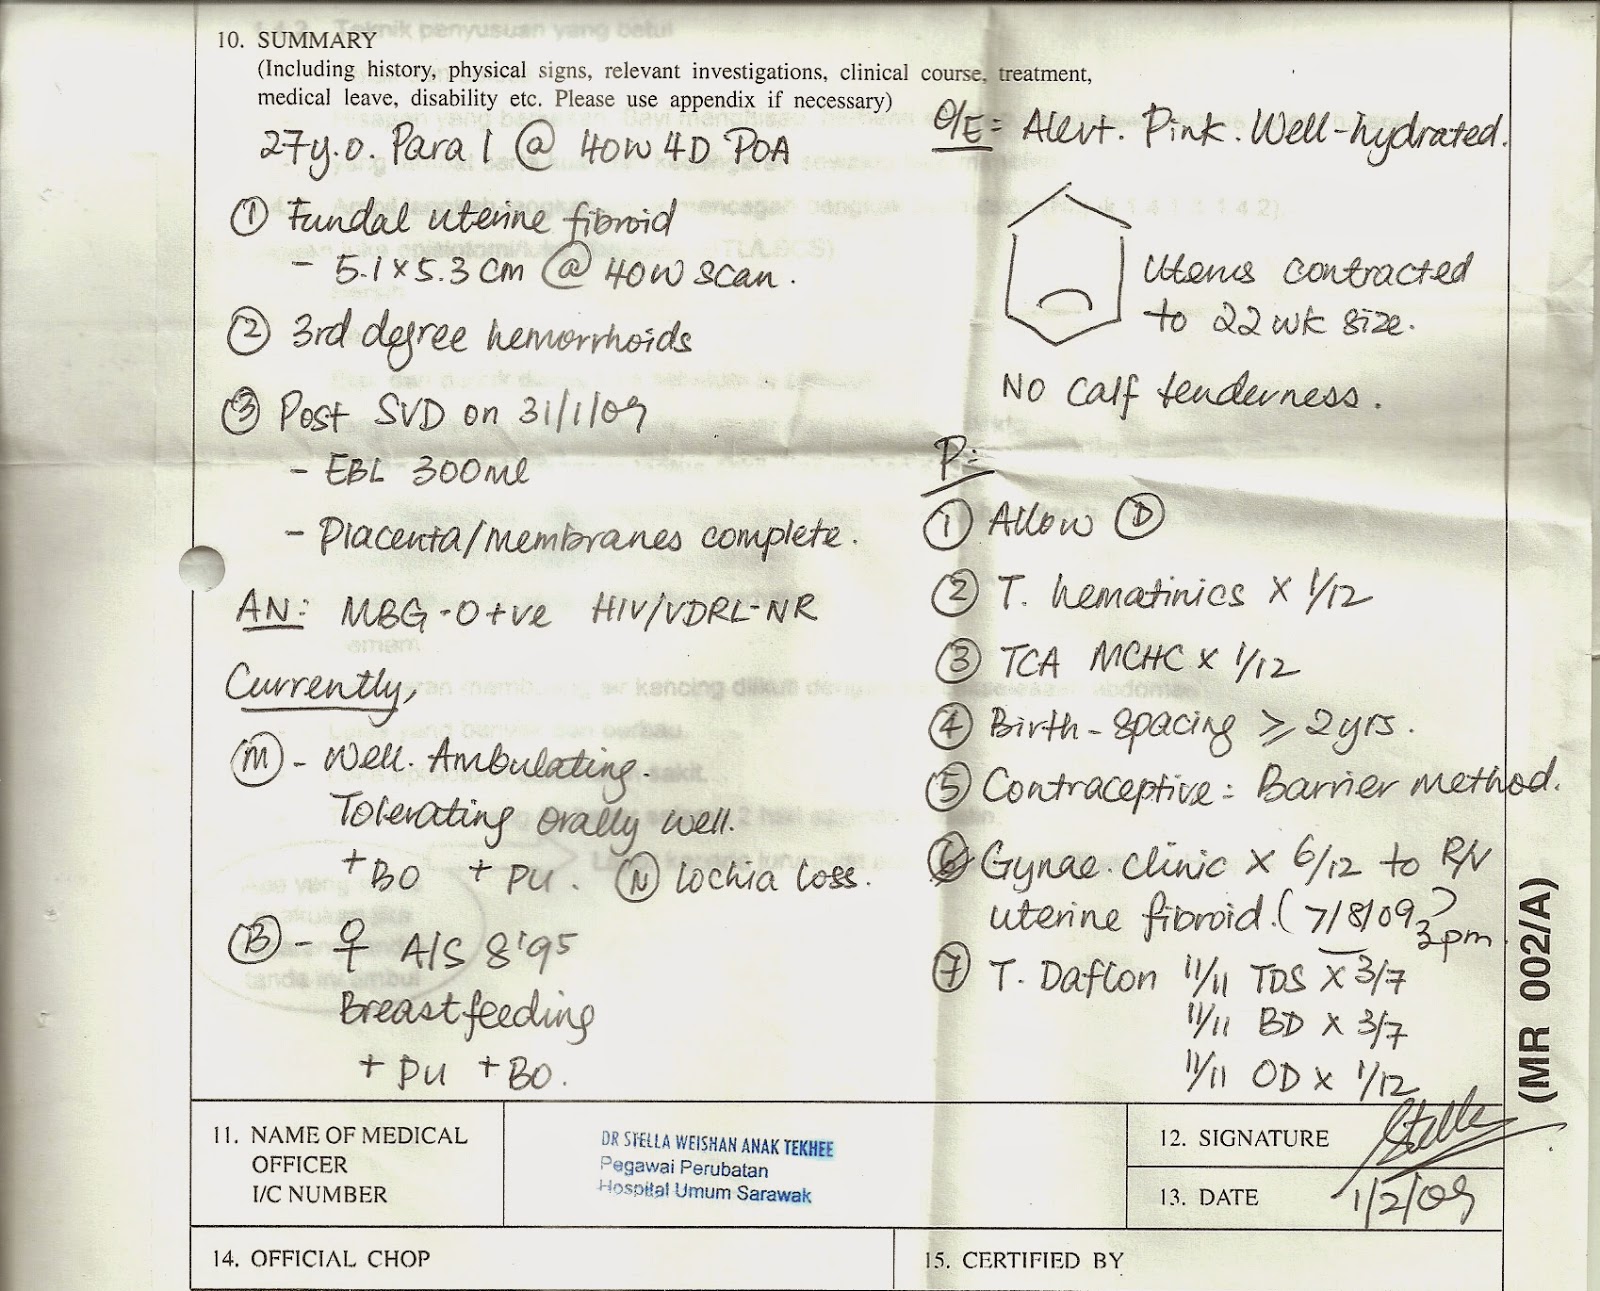 10. SUMMARY
(Including history, physical signs, relevant investigations, clinical course, treatment,
medical leave, disability etc. Please use appendix if necessary)
27y.o. Para 1 @ 40W 4D POA
① Fundal uterine fibroid
- 5.1 x 5.3 cm @ 40W scan.
② 3rd degree hemorrhoids
③ Post SVD on 31/1/09
- EBL 300ml
- Placenta/membranes complete.
AN: MBG - O+ve HIV/VDRL-NR
Currently,
Ⓜ - Well. Ambulating.
Tolerating orally well.
+BO +PU. Ⓝ lochia loss.
Ⓑ - ♀ A/S 8'9⁵
Breastfeeding
+PU +BO.
O/E: Alert. Pink. Well-hydrated.
Uterus contracted
to 22 wk size.
No calf tenderness.
P:
① Allow Ⓓ
② T. hematinics x 1/12
③ TCA MCHC x 1/12
④ Birth-spacing ≥ 2yrs.
⑤ Contraceptive: Barrier method.
⑥ Gynae. clinic x 6/12 to R/V
uterine fibroid. (7/8/09)
2pm
⑦ T. Daflon 11/11 TDS x 3/7
11/11 BD x 3/7
11/11 OD x 1/12
(MR 002/A)
11. NAME OF MEDICAL
OFFICER
I/C NUMBER
DR STELLA WEISHAN ANAK TEKHEE
Pegawai Perubatan
Hospital Umum Sarawak
12. SIGNATURE Stella
13. DATE 1/2/09
14. OFFICIAL CHOP
15. CERTIFIED BY